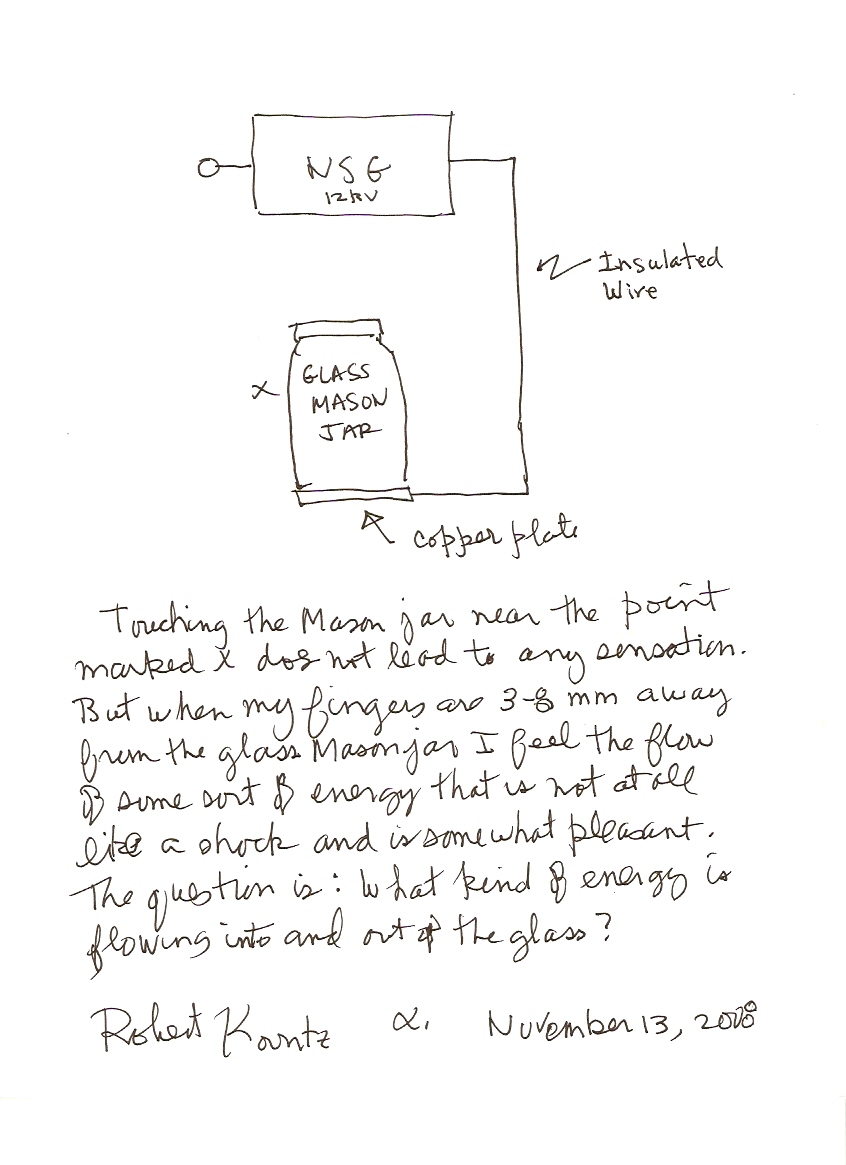 NSG
12KV
Insulated
Wire
GLASS
x
MASON
JAR
copper plate
Touching the Mason jar near the point
marked x does not lead to any sensation.
But when my fingers are 3-8 mm away
from the glass Mason jar I feel the flow
of some sort of energy that is not at all
like a shock and is somewhat pleasant.
The question is: What kind of energy is
flowing into and out of the glass?
Robert Kountz α. November 13, 2008